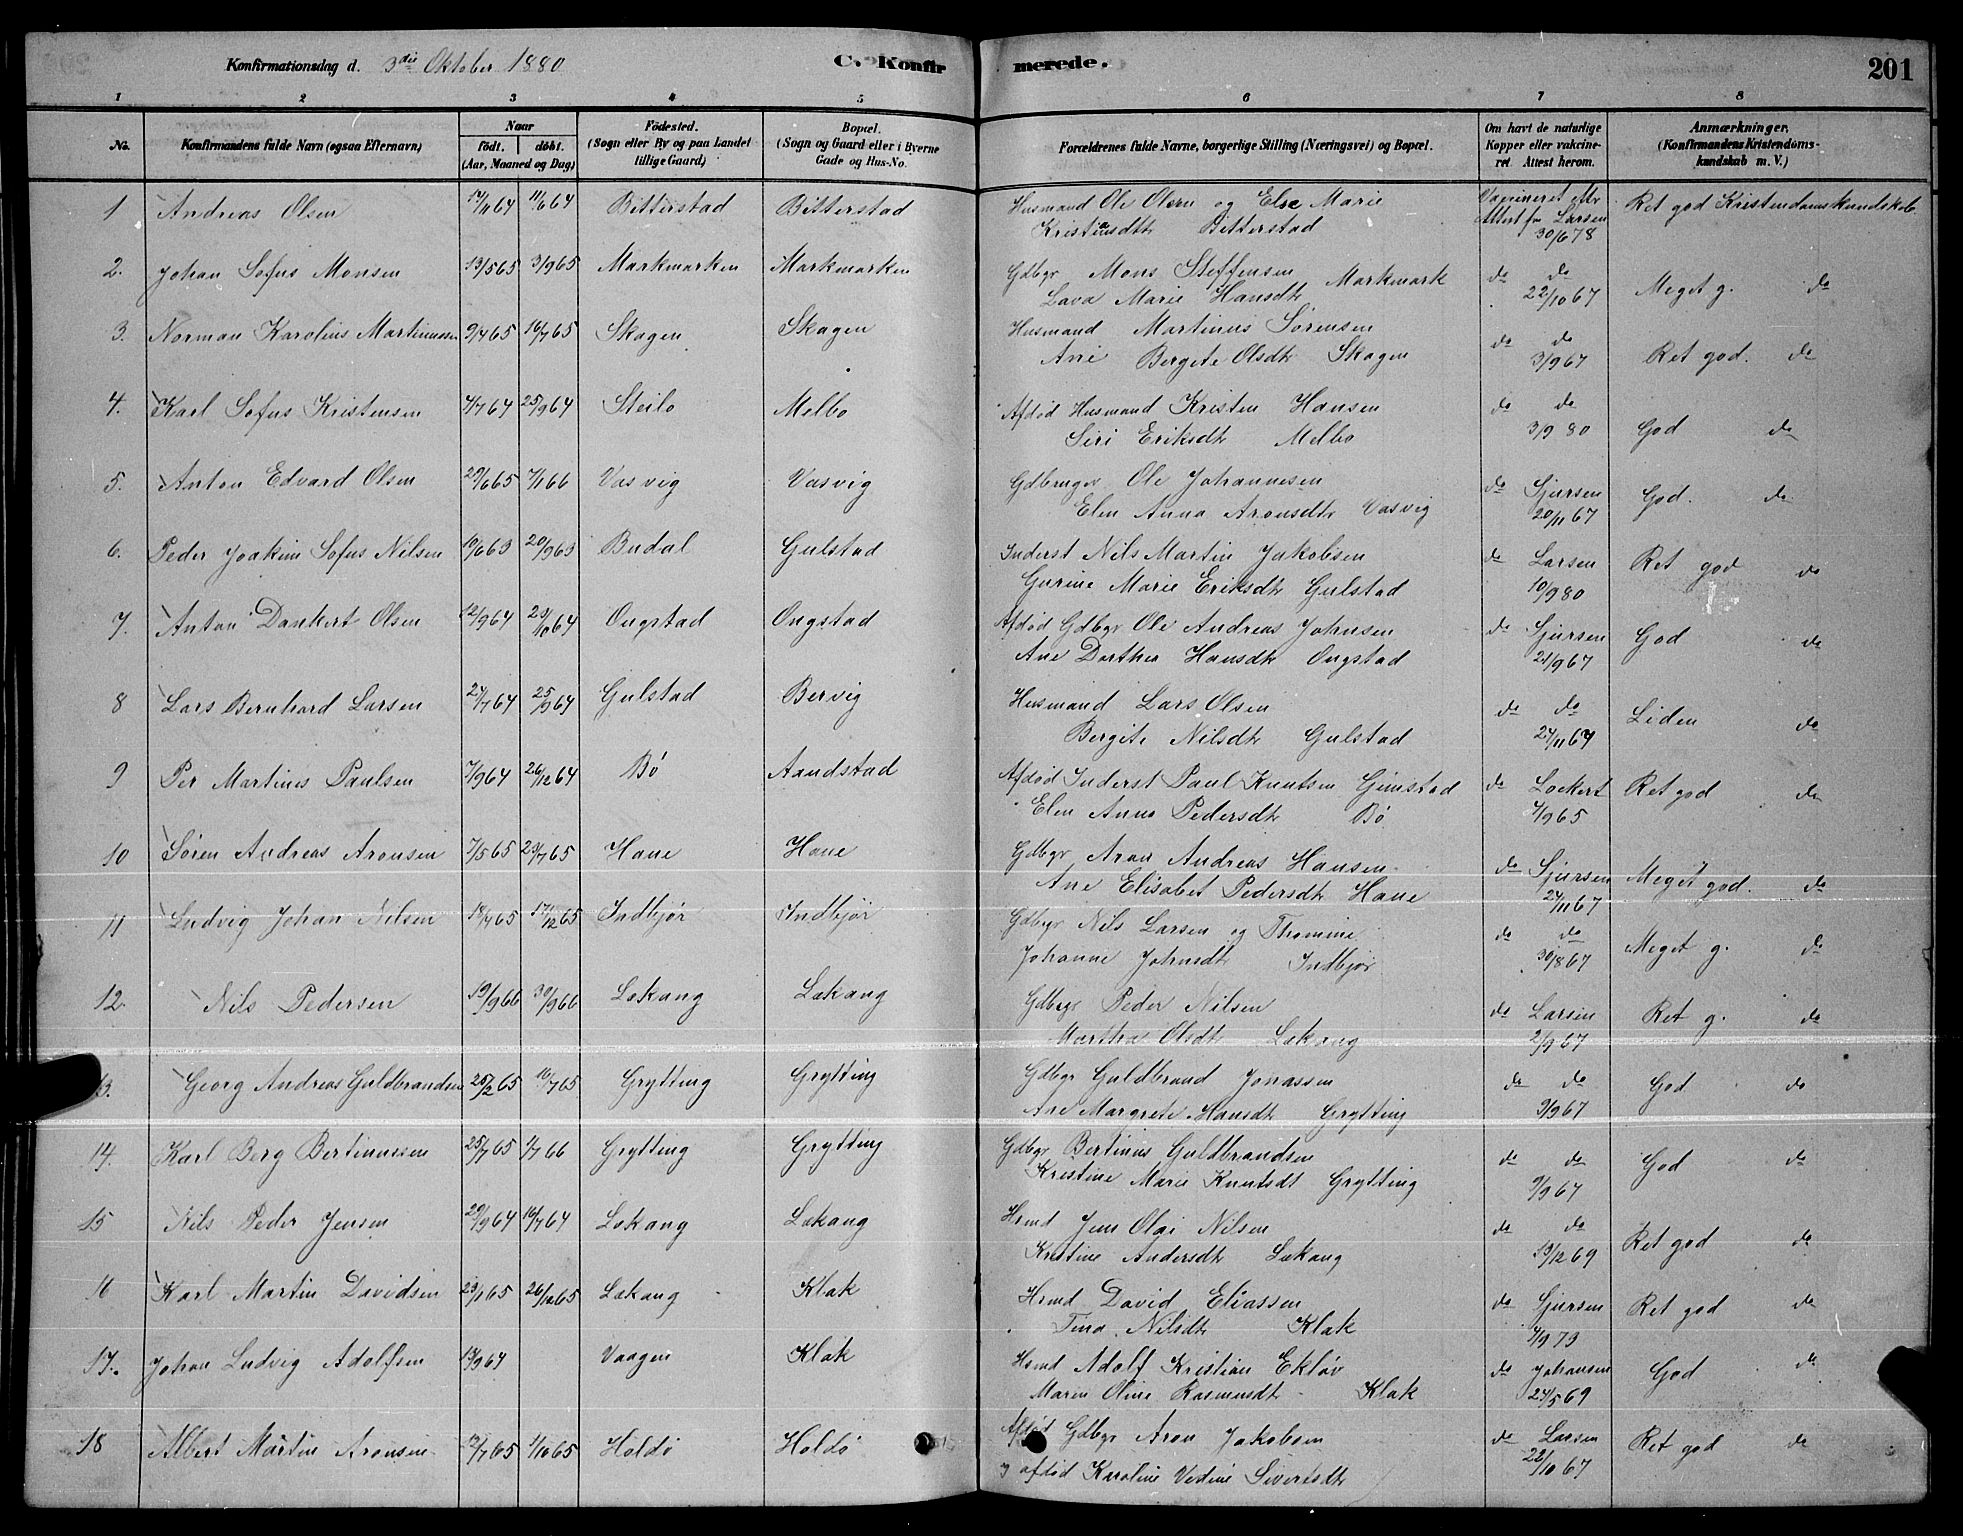 Konfirmationsdag d. 3die Oktober 1880 C. Konfirmerede. 201
1 2 3 4 5 6 7 8
No. Konfirmandens fulde Navn (ogsaa Efternavn) Naar født. døbt. (Aar, Maaned og Dag) Fødested. (Sogn eller By og paa Landet tillige Gaard) Bopæl. (Sogn og Gaard eller i Byerne Gade og Hus-No. Forældrenes fulde Navne, borgerlige Stilling (Næringsvei) og Bopæl. Om havt de naturlige Kopper eller vakcineret Attest herom. Anmærkninger. (Konfirmandens Kristendomskundskab m. V.)
1 Andreas Olsen 11/6 64 Bitterstad Bitterstad Husmand Ole Olsen og Else Marie Vaccineret Attest fr Larsen Ret god Kristendomskundskab
Kristensdtr Bitterstad 30/6 78
2. Johan Sofus Monsen 13/5 65 3/9 65 Markmarken Markmarken Gdbgr Mons Steffensen Markmark do do Meget g. do
Lava Marie Hansdtr 22/10 67
3. Norman Karolius Martinussen 9/4 65 16/7 65 Skagen Skagen Husmand Martinus Sørensen do do Ret god. do
Ane Bergete Olsdtr Skagen 3/9 67
4. Karl Sofus Kristensen 4/7 64 25/9 64 Steilo Melbo Afdød Husmand Kristen Hansen do do God do
Siri Eriksdtr Melbo 3/9 80
5. Anton Edvard Olsen 29/6 65 7/1 66 Vasvig Vasvig Gdbruger Ole Johannesen do Sjursen God. do
Elen Anna Aronsdtr Vasvig 20/11 67
6. Peder Joakim Sofus Nilsen 10/6 63 20/9 63 Budal Gulstad Inderst Nils Martin Jakobsen do Larsen Ret god do
Gurine Marie Eriksdtr Gulstad 10/9 80
7. Anton Dankert Olsen 12/9 64 23/10 64 Ongstad Ongstad Afdød Gdbgr Ole Andreas Johnsen do Sjursen God do
Ane Dorthea Hansdtr Ongstad 21/9 67
8 Lars Bernhard Larsen 27/7 64 25/9 64 Gulstad Bervig Husmand Lars Olsen do do Liden do
Bergite Nilsdtr Gulstad 27/11 67
9 Per Martinus Paulsen 7/9 64 26/12 64 Bö Aandstad Afdød Inderst Paul Knutsen Gimstad do Lockert Ret god do
Elen Anna Pedersdtr Bö 4/9 65
10 Søren Andreas Aronsen 7/5 65 23/7 65 Hane Hane Gdbgr Aron Andreas Hansen do Sjursen Meget god. do
Ane Elisabet Pedersdtr Hane 24/11 67
11 Ludvig Johan Nilsen 17/12 65 Indbjør Indbjør Gdbgr Nils Larsen og Thomine do do Meget g. do
Johanne Johnsdtr Indbjør 30/8 67
12. Nils Pedersen 19/9 66 30/9 66 Lekang Lekang Gdbgr Peder Nilsen do Larsen Ret g. do
Martha Olsdtr Lekang 2/9 67
13. Georg Andreas Guldbrandsen 25/2 65 16/7 65 Grytting Grytting Gdbgr Guldbrand Jonassen do do God do
Ane Margrete Hansdtr Grytting 9/9 67
14. Karl Berg Bertinussen 25/7 65 1/7 66 Grytting Grytting Gdbgr Bertinus Guldbrandsen do do God do
Kristine Marie Knutsdt Grytting 9/9 67
15 Nils Peder Jensen 16/7 64 Lekang Lekang Hsmd Jens Olai Nilsen do do Ret god do
Kristine Andersdtr Lekang 19/12 69
16 Karl Martin Davidsen 23/1 65 26/12 65 Lekang Klak Hsmd David Eliassen do Sjursen Ret god do
Tina Nilsdtr Klak 4/9 73
17. Johan Ludvig Adolfsen Vaagen Klak Hsmd Adolf Kristian Ekløv do Johansen God do
Maren Oline Rasmusdtr Klak 24/5 69
18 Albert Martin Aronsen 1/10 65 Holdö Holdö Afdød Gdbgr Aron Jakobsen do Larsen Ret god do
og afdød Karoline Vedine Sivertsdtr 22/10 67